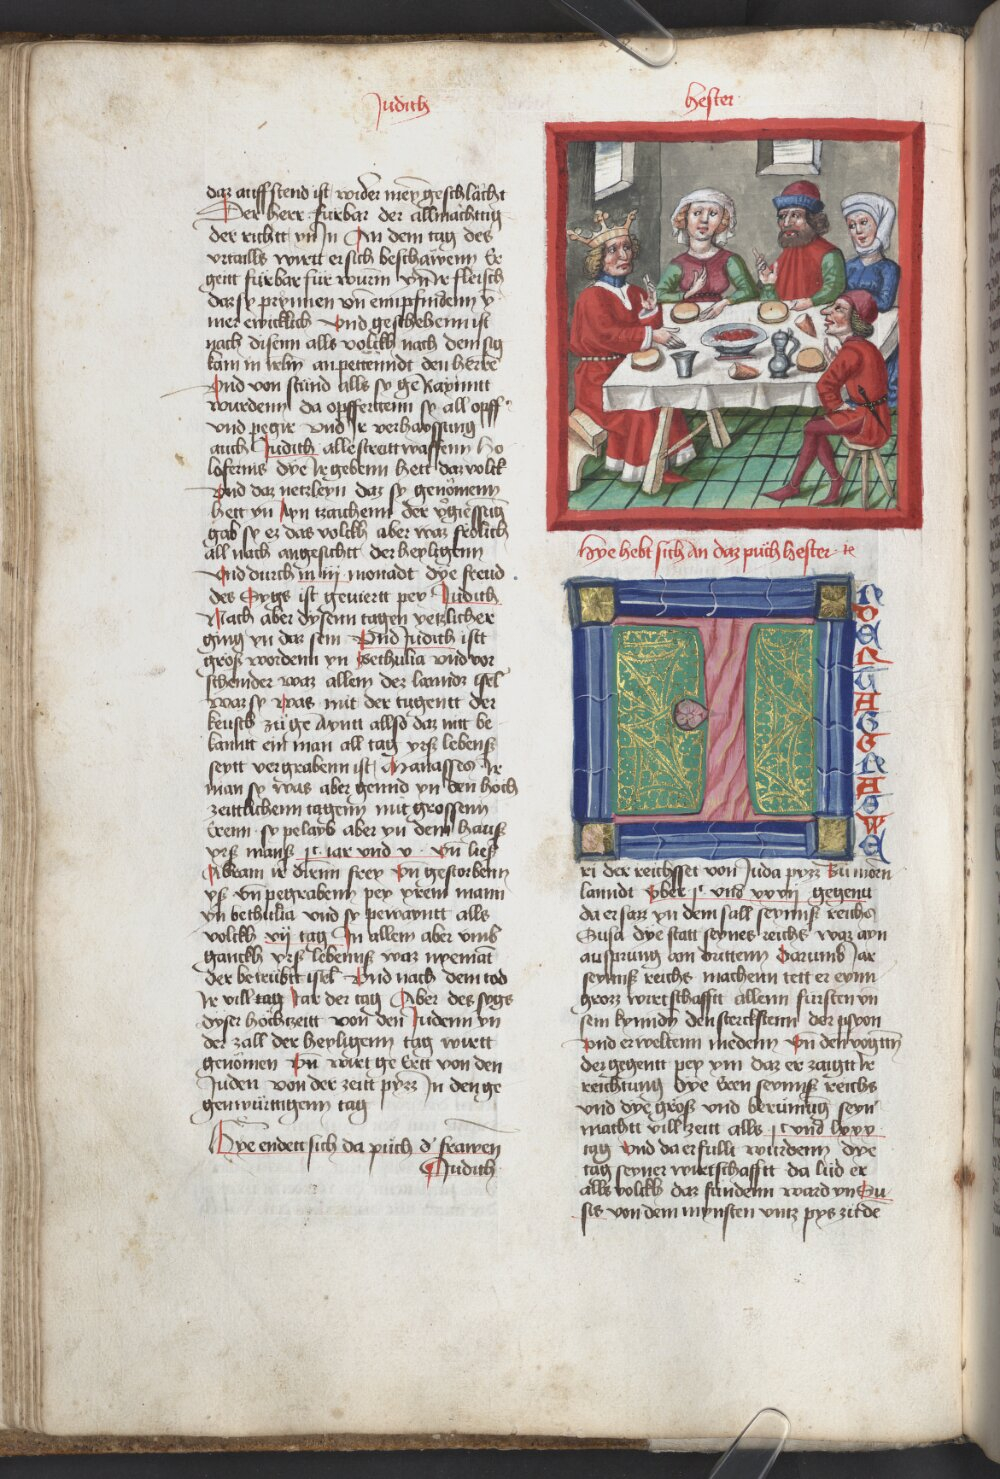 Judith
daz auffstend ist wider mey geschlächt
Der herr fürbar der allmächttig
der richtt yn Jn An dem tag des
vrtaills wirtt er sich beschawenn Er
geitt fürbar für würm vnd fleisch
daz sy prynnen vnd empfindenn y
mer ewicklich Und geschehenn ist
nach disenn alls volckh nach dem sig
kam in anpettenndt den herre
Und von stund alls sy
wurdenn da opffertten sy all opff
vnd pegir vnd Jr verhayssung
auch Judith alle streitt waffenn Ho
lofernis dye Jr gebenn hett daz volck
Und daz netzleyn daz sy genomenn
hett yn Ayn tzaichenn der
gab sy ez das volckh aber waz frölich
all nach angesichtt der heyligenn
Und durch iij monadt dye freud
des Sygs ist geviertt pey Judith
Nach aber dysenn tagen yetzlicher
ging yn daz sein Und Judith istt
groß wordenn yn Bethulia vnd vor
scheinder waz allem der lanndt isrl
war sy was mit der tugentt der
keusch zu ge aynt allso daz nitt be
kanntt ein man all tag yrß lebenß
seytt vergrabenn ist Manasses Jr
man sy was aber gemid yn den höch
zeittlichenn tagenn mit grossenn
Erenn sy pelayb aber yn dem hauß
yrß manß jc iar vnd v vn ließ
Abram ir dirnn frey Vn gestorbenn
yß vn pegrabenn pey yrem mann
yn bethulia vnd sy pewayntt alls
volckh vij tag Jn allem aber vmb
ganckh yrß lebenß waz nyemät
der betrübtt isrl Und nach dem tod
Jr vill tag Jar der tag Aber des sygs
dyser hochtzeitt von den Judenn yn
der zall der heyligenn tag wirtt
genomen Vn wirt ge Ertt von den
Juden von der zeitt pyzz Jn den ge
genwürttigenn tag
Hye endett sich da püch d' frawen
Judith
Hester
Hye hebt sich an daz püch Hester
ri der reichsset von Juda pyzz
lanndt Vber jc vnd xxvij gegent
da er sazz yn dem sall seyniß reichs
Susa dye statt seynes reichs waz ayn
aufprung am drittenn Darumb Jar
seyniß reichs machenn tett er eynn
grozz wirtschafft allenn fürsten vn
sein kynndn den sterckstenn der psyon
vnd erweltenn medenn Vn den vögttn
der gegentt pey ym daz er zaigtt Jr
reichtung dye Eren seyniß reichs
vnd dye größ vnd berümug seyn
machtt vill zeitt alls jc vnd lxxx
tag Und da erfullt wurdenn dye
tag seyner wirtschafft da lud er
alls volckh daz fundenn ward yn Su
sis von dem mynsten vntz pys zu de